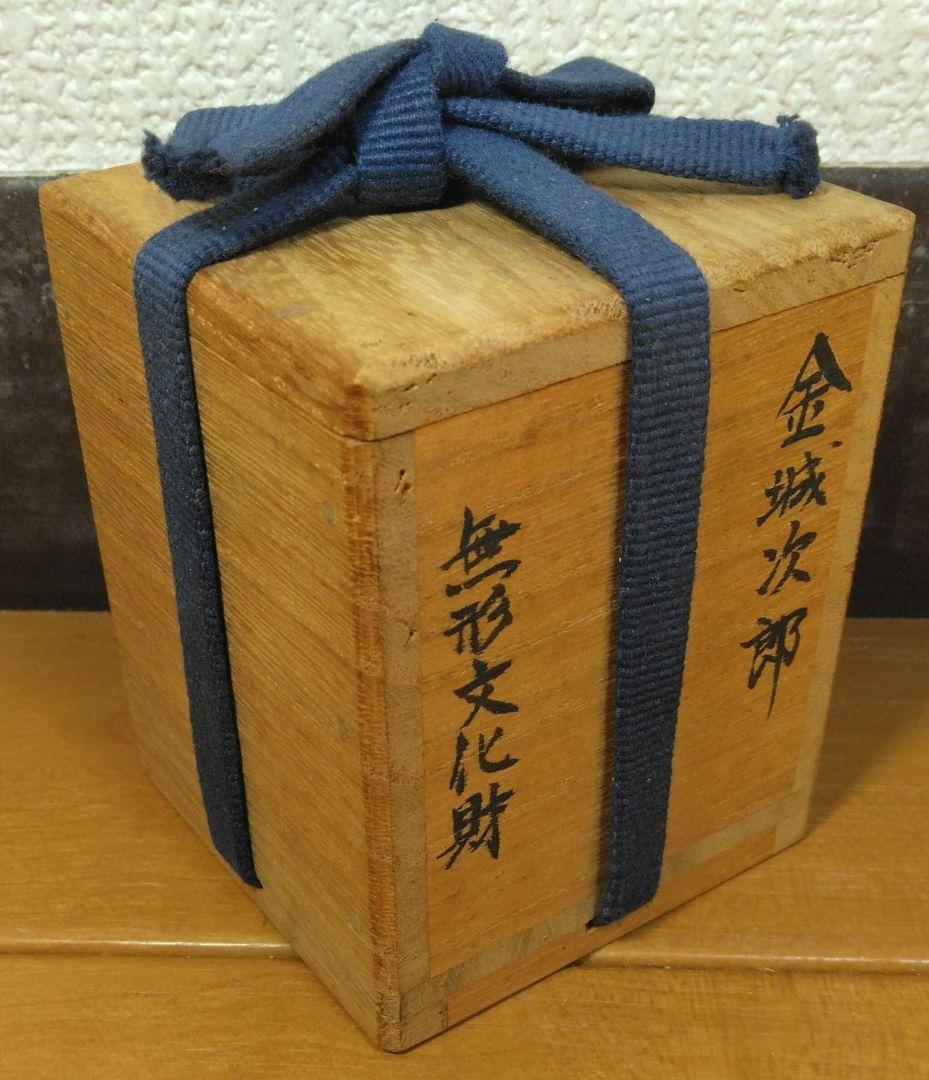 金城次郎
無形文化財